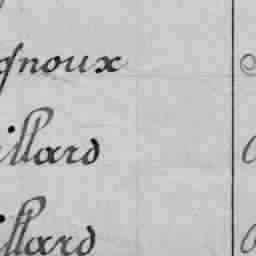 gnoux
illard
illard